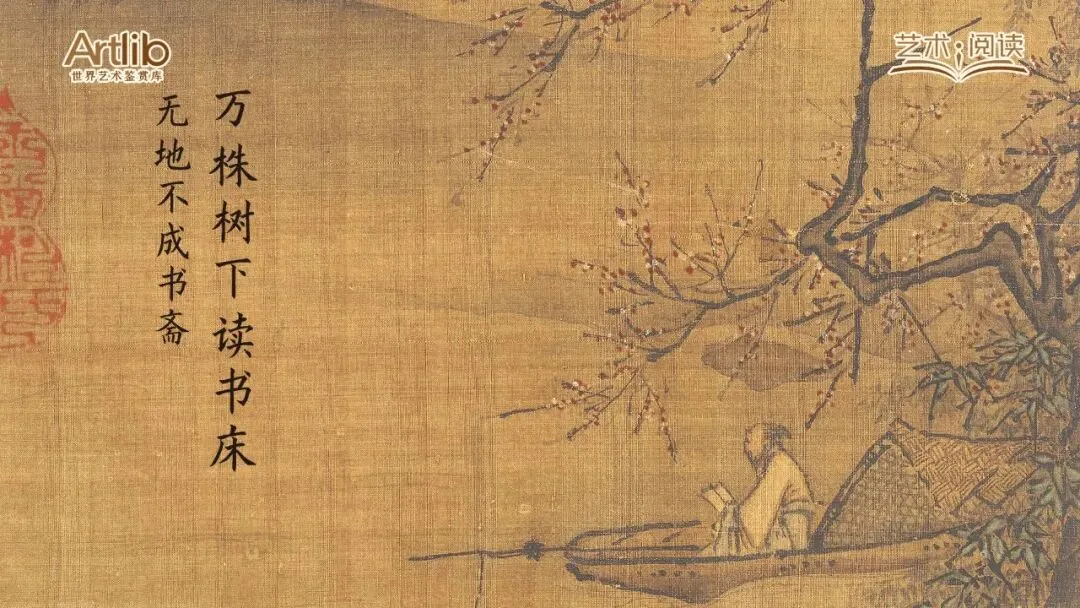 Artlib
世界艺术鉴赏库
艺术;阅读
万株树下读书床
无地不成书斋